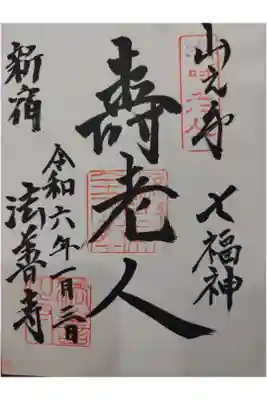 山之手
七福神
壽老人
令和六年一月三日
新宿
法善寺